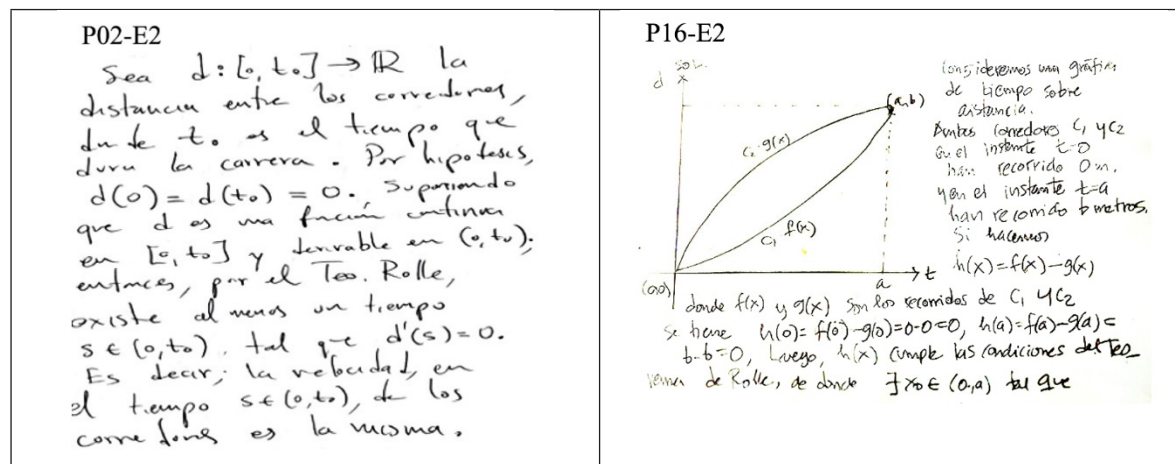 P02-E2
Sea d:[0,t₀]→ℝ la
distancia entre los corredores,
donde t₀ es el tiempo que
dura la carrera. Por hipótesis,
d(0)=d(t₀)=0., suponiendo
que d es una función continua
en [0,t₀] y derivable en (0,t₀);
entonces, por el Teo. Rolle,
existe al menos un tiempo
s∈(0,t₀), tal que d'(s)=0.
Es decir, la velocidad, en
el tiempo s∈(0,t₀), de los
corredores es la misma.
P16-E2
sol.
d
x
(a,b)
C₂ g(x)
C₁ f(x)
(0,0)
a
t
Consideremos una gráfica
de tiempo sobre
distancia.
Ambos corredores C₁ y C₂
en el instante t=0
han recorrido 0m.
y en el instante t=a
han recorrido b metros.
Si hacemos
h(x)=f(x)-g(x)
donde f(x) y g(x) son los recorridos de C₁ y C₂
se tiene h(0)=f(0)-g(0)=0-0=0, h(a)=f(a)-g(a)=
b-b=0, Luego, h(x) cumple las condiciones del Teo
rema de Rolle, de donde ∃ x₀∈(0,a) tal que